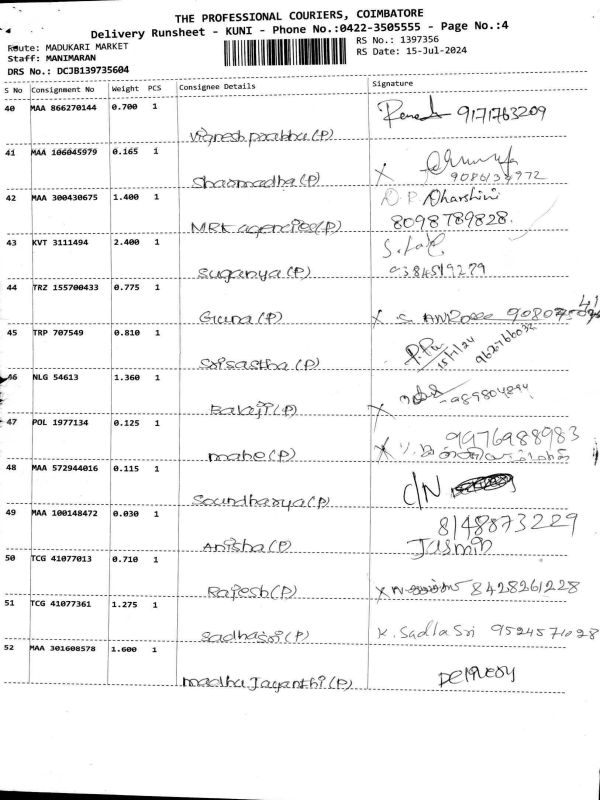 THE PROFESSIONAL COURIERS, COIMBATORE
Delivery Runsheet - KUNI - Phone No.:0422-3505555 - Page No.:4
Route: MADUKARI MARKET
Staff: MANIMARAN
DRS No.: DCJB139735604
RS No.: 1397356
RS Date: 15-Jul-2024
S No Consignment No Weight PCS Consignee Details Signature
40 MAA 866270144 0.700 1
Vignesh prabhu (P) 9171763209
41 MAA 106045979 0.165 1
Sharmadha (P) X
42 MAA 300430675 1.400 1 D.R. Dharshini
MRK agencies (P) 8098789828.
43 KVT 3111494 2.400 1
Suganya (P) 9384519279
44 TRZ 155700433 0.775 1
Guna (P) X S.
45 TRP 707549 0.810 1
Srisastha (P) 15/7/24
46 NLG 54613 1.360 1
Balaji (P) X
47 POL 1977134 0.125 1 9976988983
mahe (P) X
48 MAA 572944016 0.115 1 C/N
Soundharya (P)
49 MAA 100148472 0.030 1 8148873229
Anisha (P) Jasmin
50 TCG 41077013 0.710 1
Rajesh (P) X 8428261228
51 TCG 41077361 1.275 1
Sadhasri (P) K. Sadha Sri 9524571028
52 MAA 301608578 1.600 1
madhu Jayanthi (P) Delivery